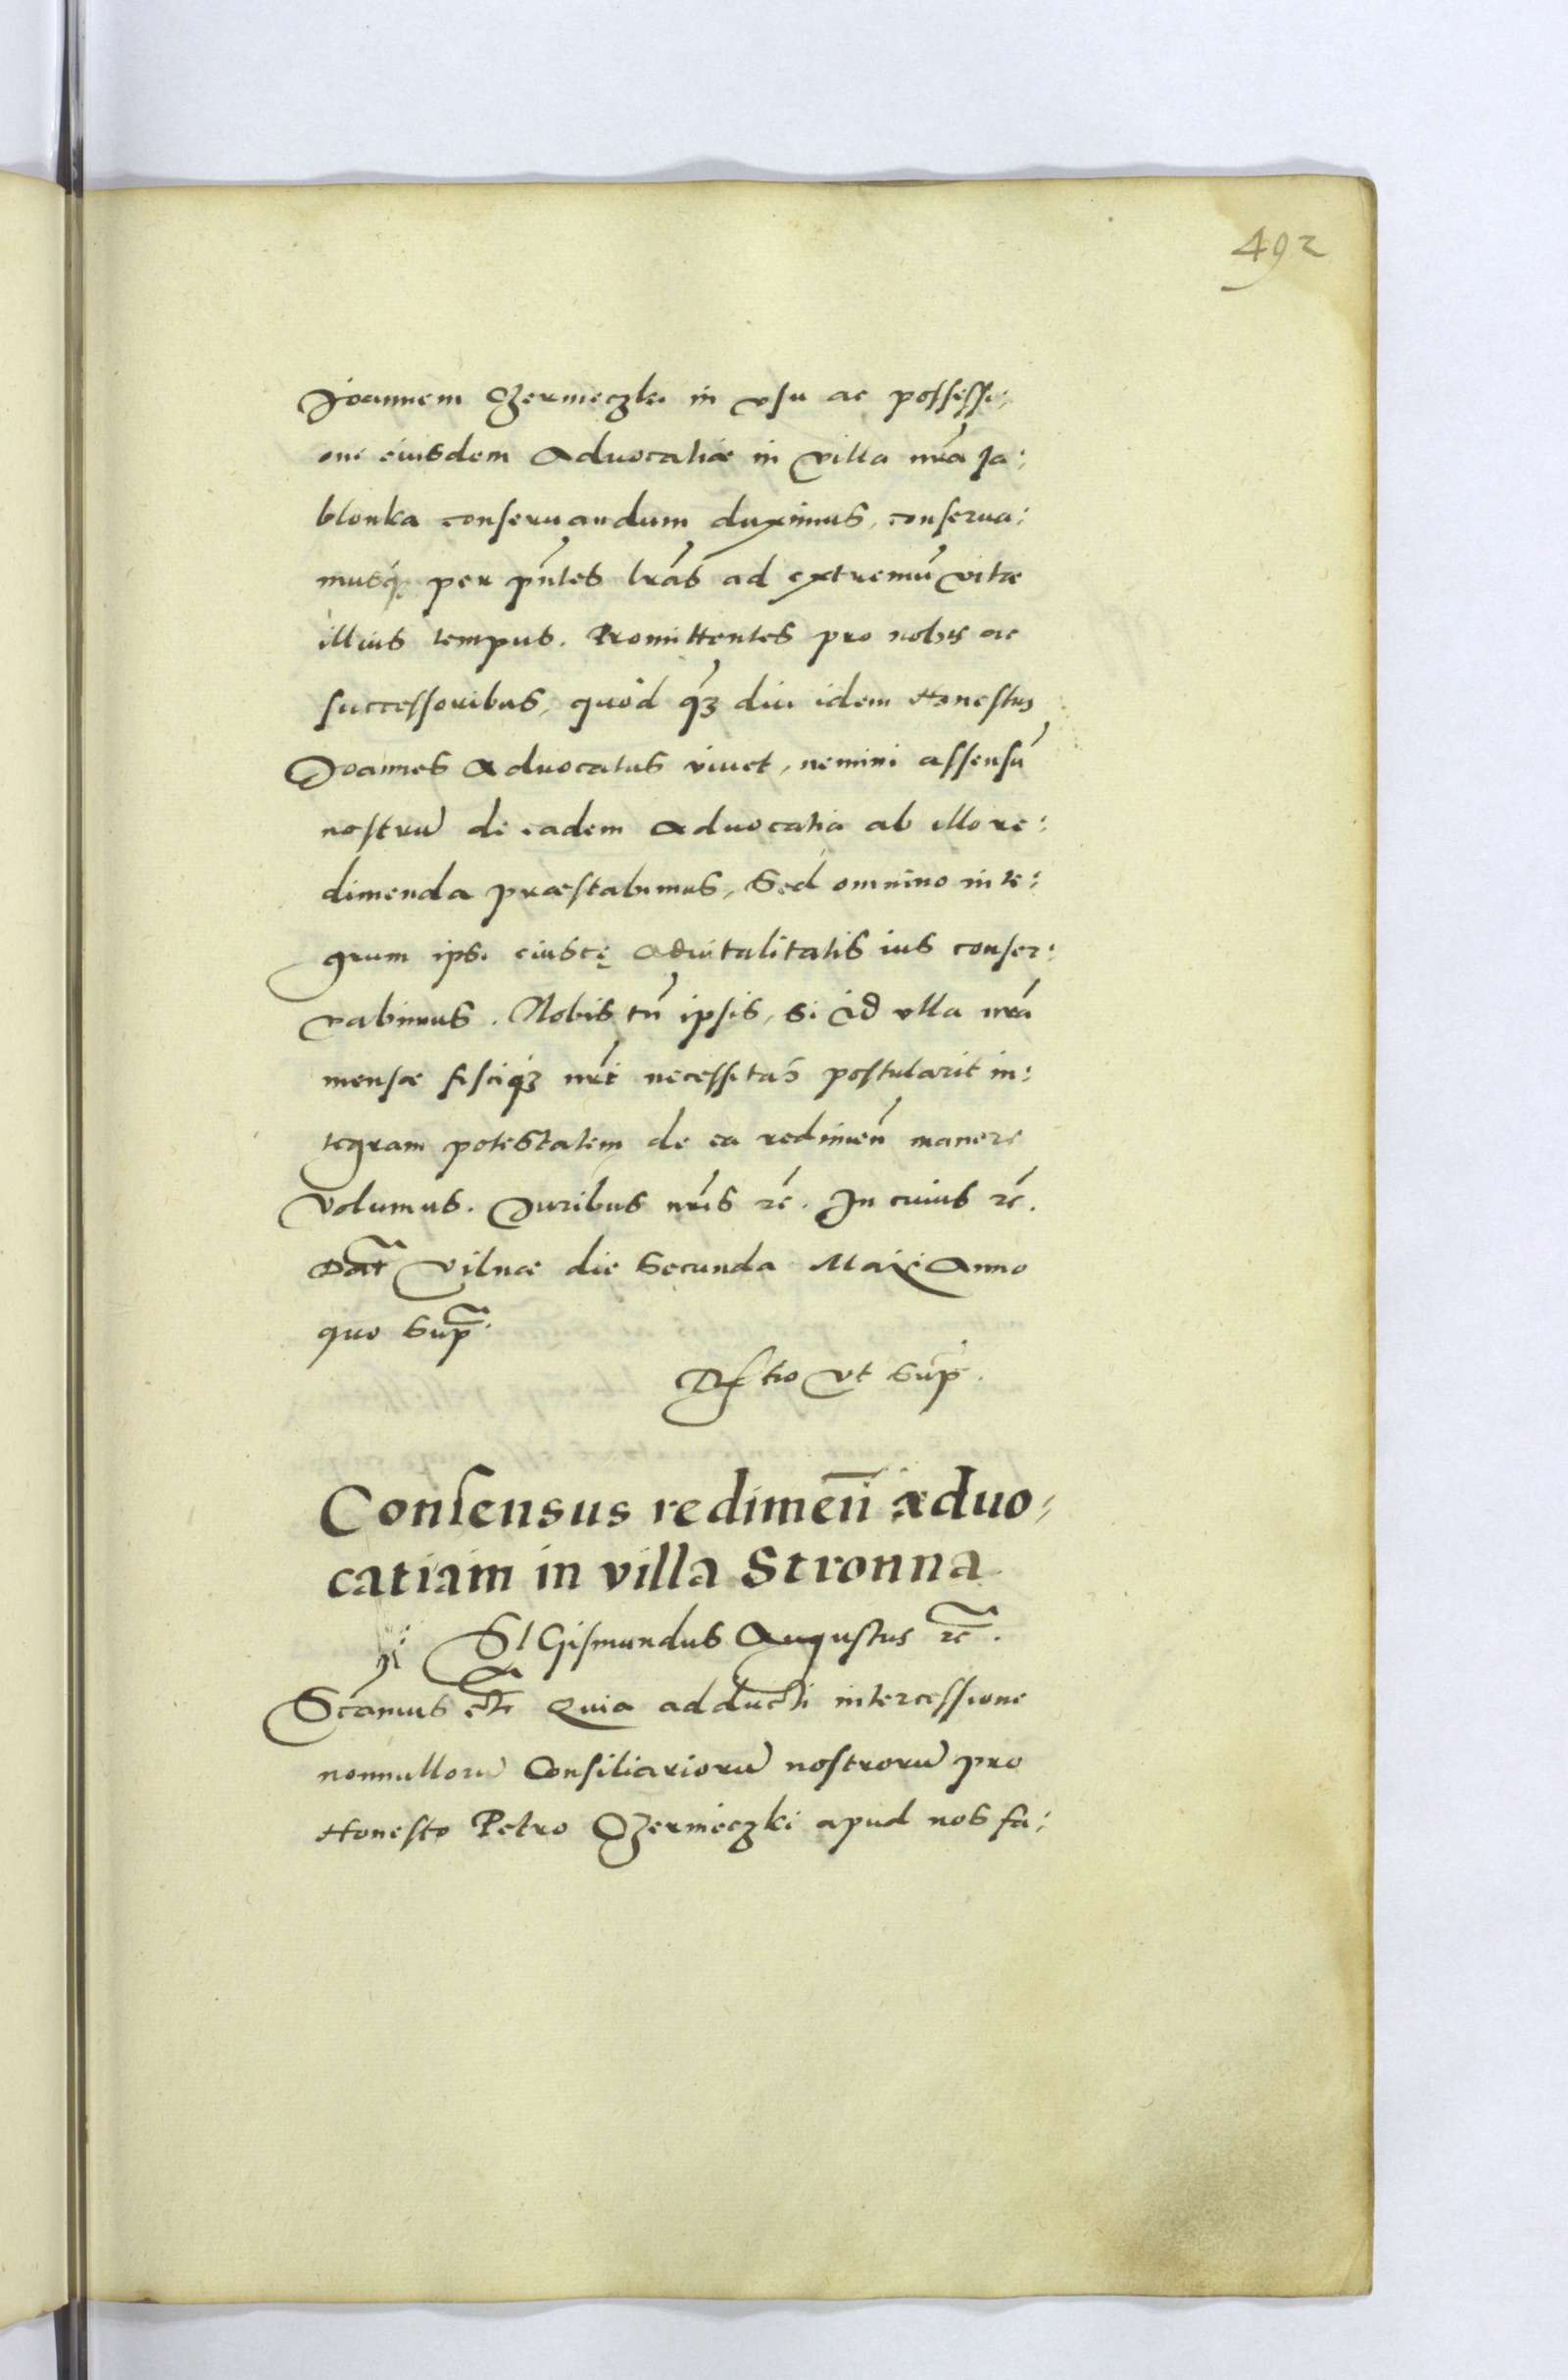 492
Joannem Czermeczki in vsu ac possessi:
one eiusdem Aduocatiæ in villa nrã Ja:
blonka conseruandum duximus, conserua:
musq́ per pñtes lrãs ad extremũ vitæ
illius tempus. Promittentes pro nobis ac
successoribus, quòd q̃ꝫ diu idem Honestus
Joannes Aduocatus viuet, nemini assensũ
nostrũ de eadem Aduocatia ab illo re:
dimenda præstabimus, Sed omnino inte:
grum ipsi aduitalitatis ius conser:
vabimus. Nobis tñ ipsis, si id vlla nrã
mensæ fisciqꝫ nri necessitas postularit in:
tegram potestatem de ea redimeñ manere
volumus. Juribus nris rc̃. In cuius rc̃.
Dat̃ Vilnæ die Secunda Maii Anno
quo Sup̃.
Rltio vt sup̃.
Consensus redimeñ aduo,
catiam in villa Stronna
Sigismundus Augustus rc̃.
Scamus etc̃ Quia adducti intercessione
nonnullorũ Consiliariorũ nostrorũ pro
Honesto Petro Czermeczki apud nos fa: